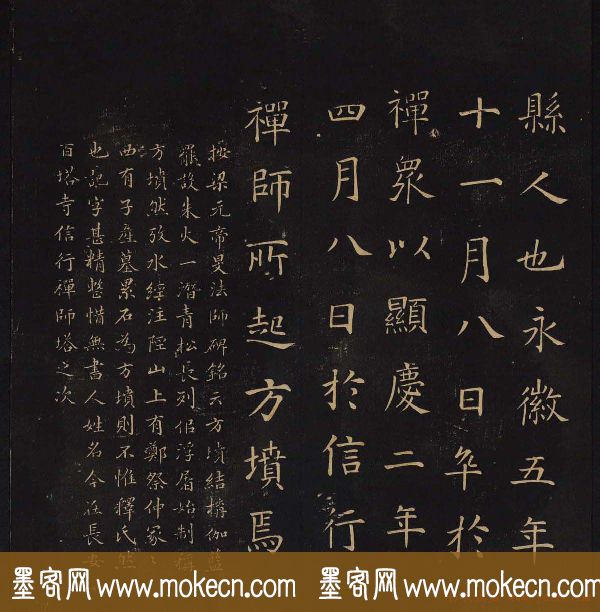 縣人也永徽五年
十一月八日卒於
禪衆以顯慶二年
四月八日於信行
禪師所起方墳焉
按梁元帝旻法師碑銘云方墳結構伽藍
罷設朱火一潛青松長列佀浮屠始制稱
方墳然攷水經注陘山上有鄭祭仲冢冢
西有子產墓累石為方墳則不惟釋氏然
也記字甚精整惜無書人姓名今在長安
百塔寺信行禪師塔之次
墨客网 www.mokecn.com 墨客网 www.mokecn.com